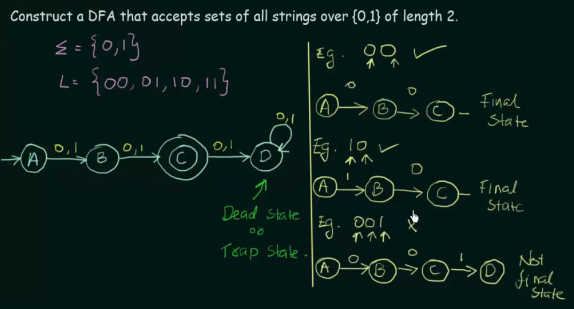 Construct a DFA that accepts sets of all strings over {0,1} of length 2.
Σ = {0,1}
L = {00, 01, 10, 11}
A 0,1 B 0,1 C 0,1 D 0,1
Dead State
or
Trap State.
Eg. 00 ✓
A 0 B 0 C – Final State
Eg. 10 ✓
A 1 B 0 C – Final State
Eg. 001 x
A 0 B 0 C 1 D Not final State